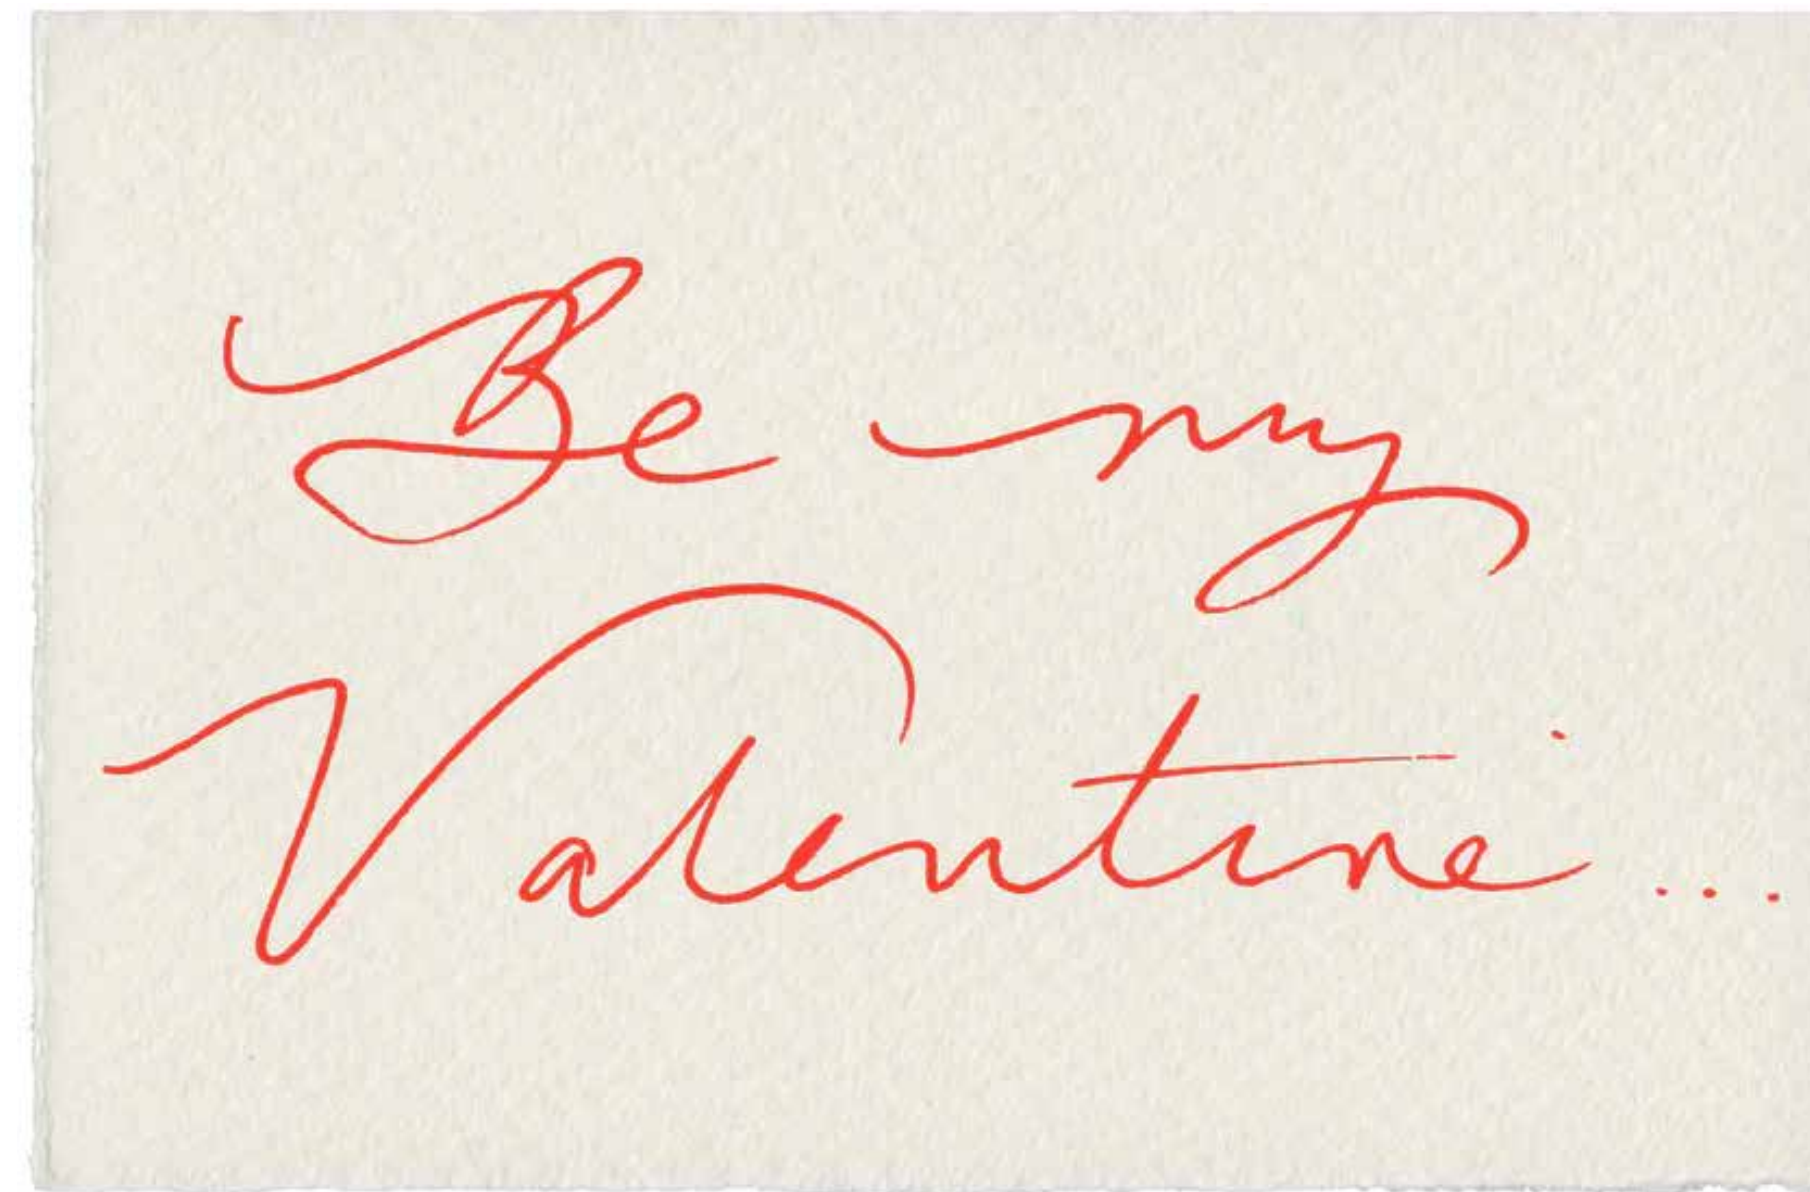 Be my
Valentine...